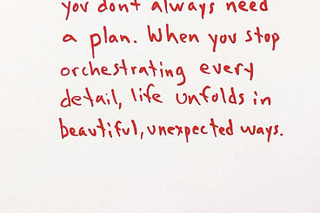 you don't always need
a plan. When you stop
orchestrating every
detail, life unfolds in
beautiful, unexpected ways.